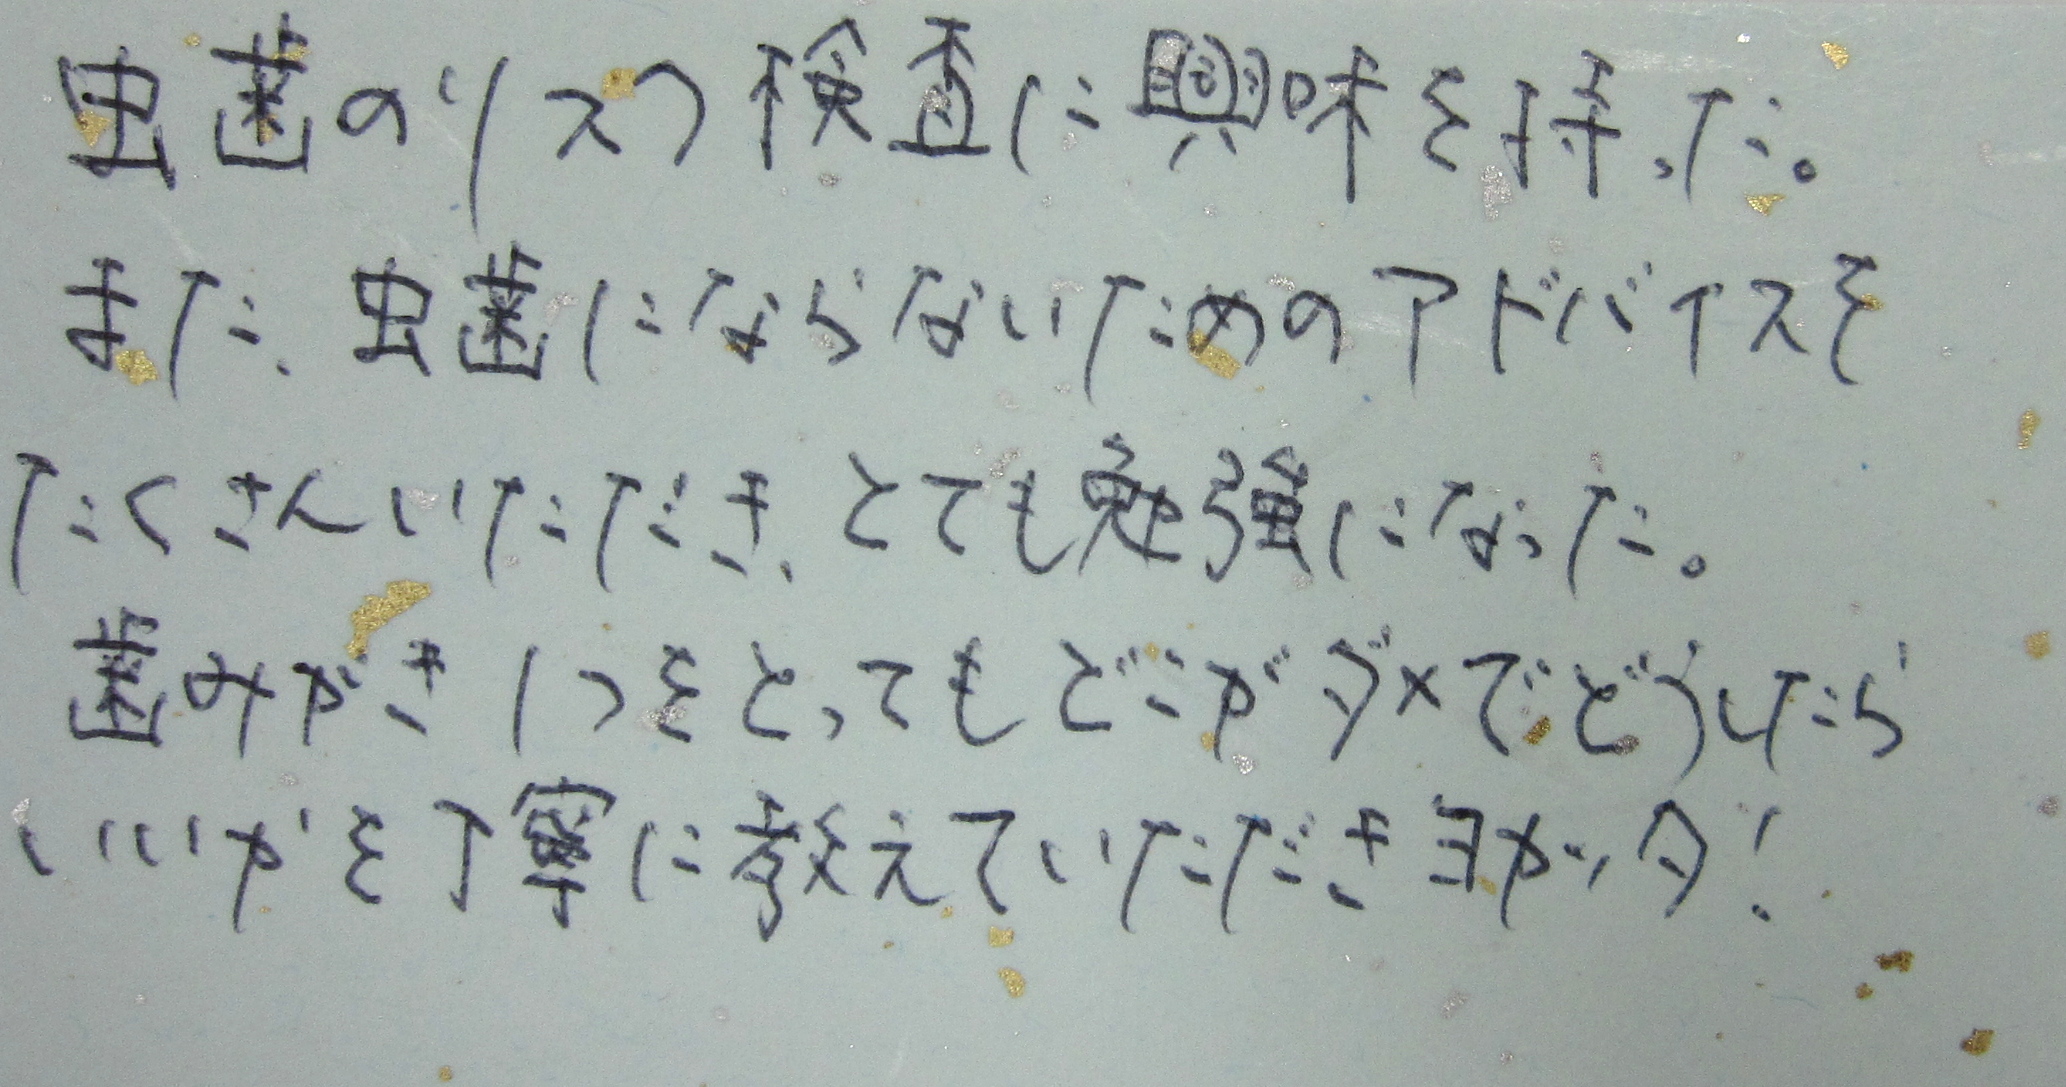 虫歯のリスク検査に興味を持った。
また、虫歯にならないためのアドバイスを
たくさんいただき、とても勉強になった。
歯みがき1つをとってもどこがダメでどうしたら
いいかを丁寧に教えていただきヨカッタ!